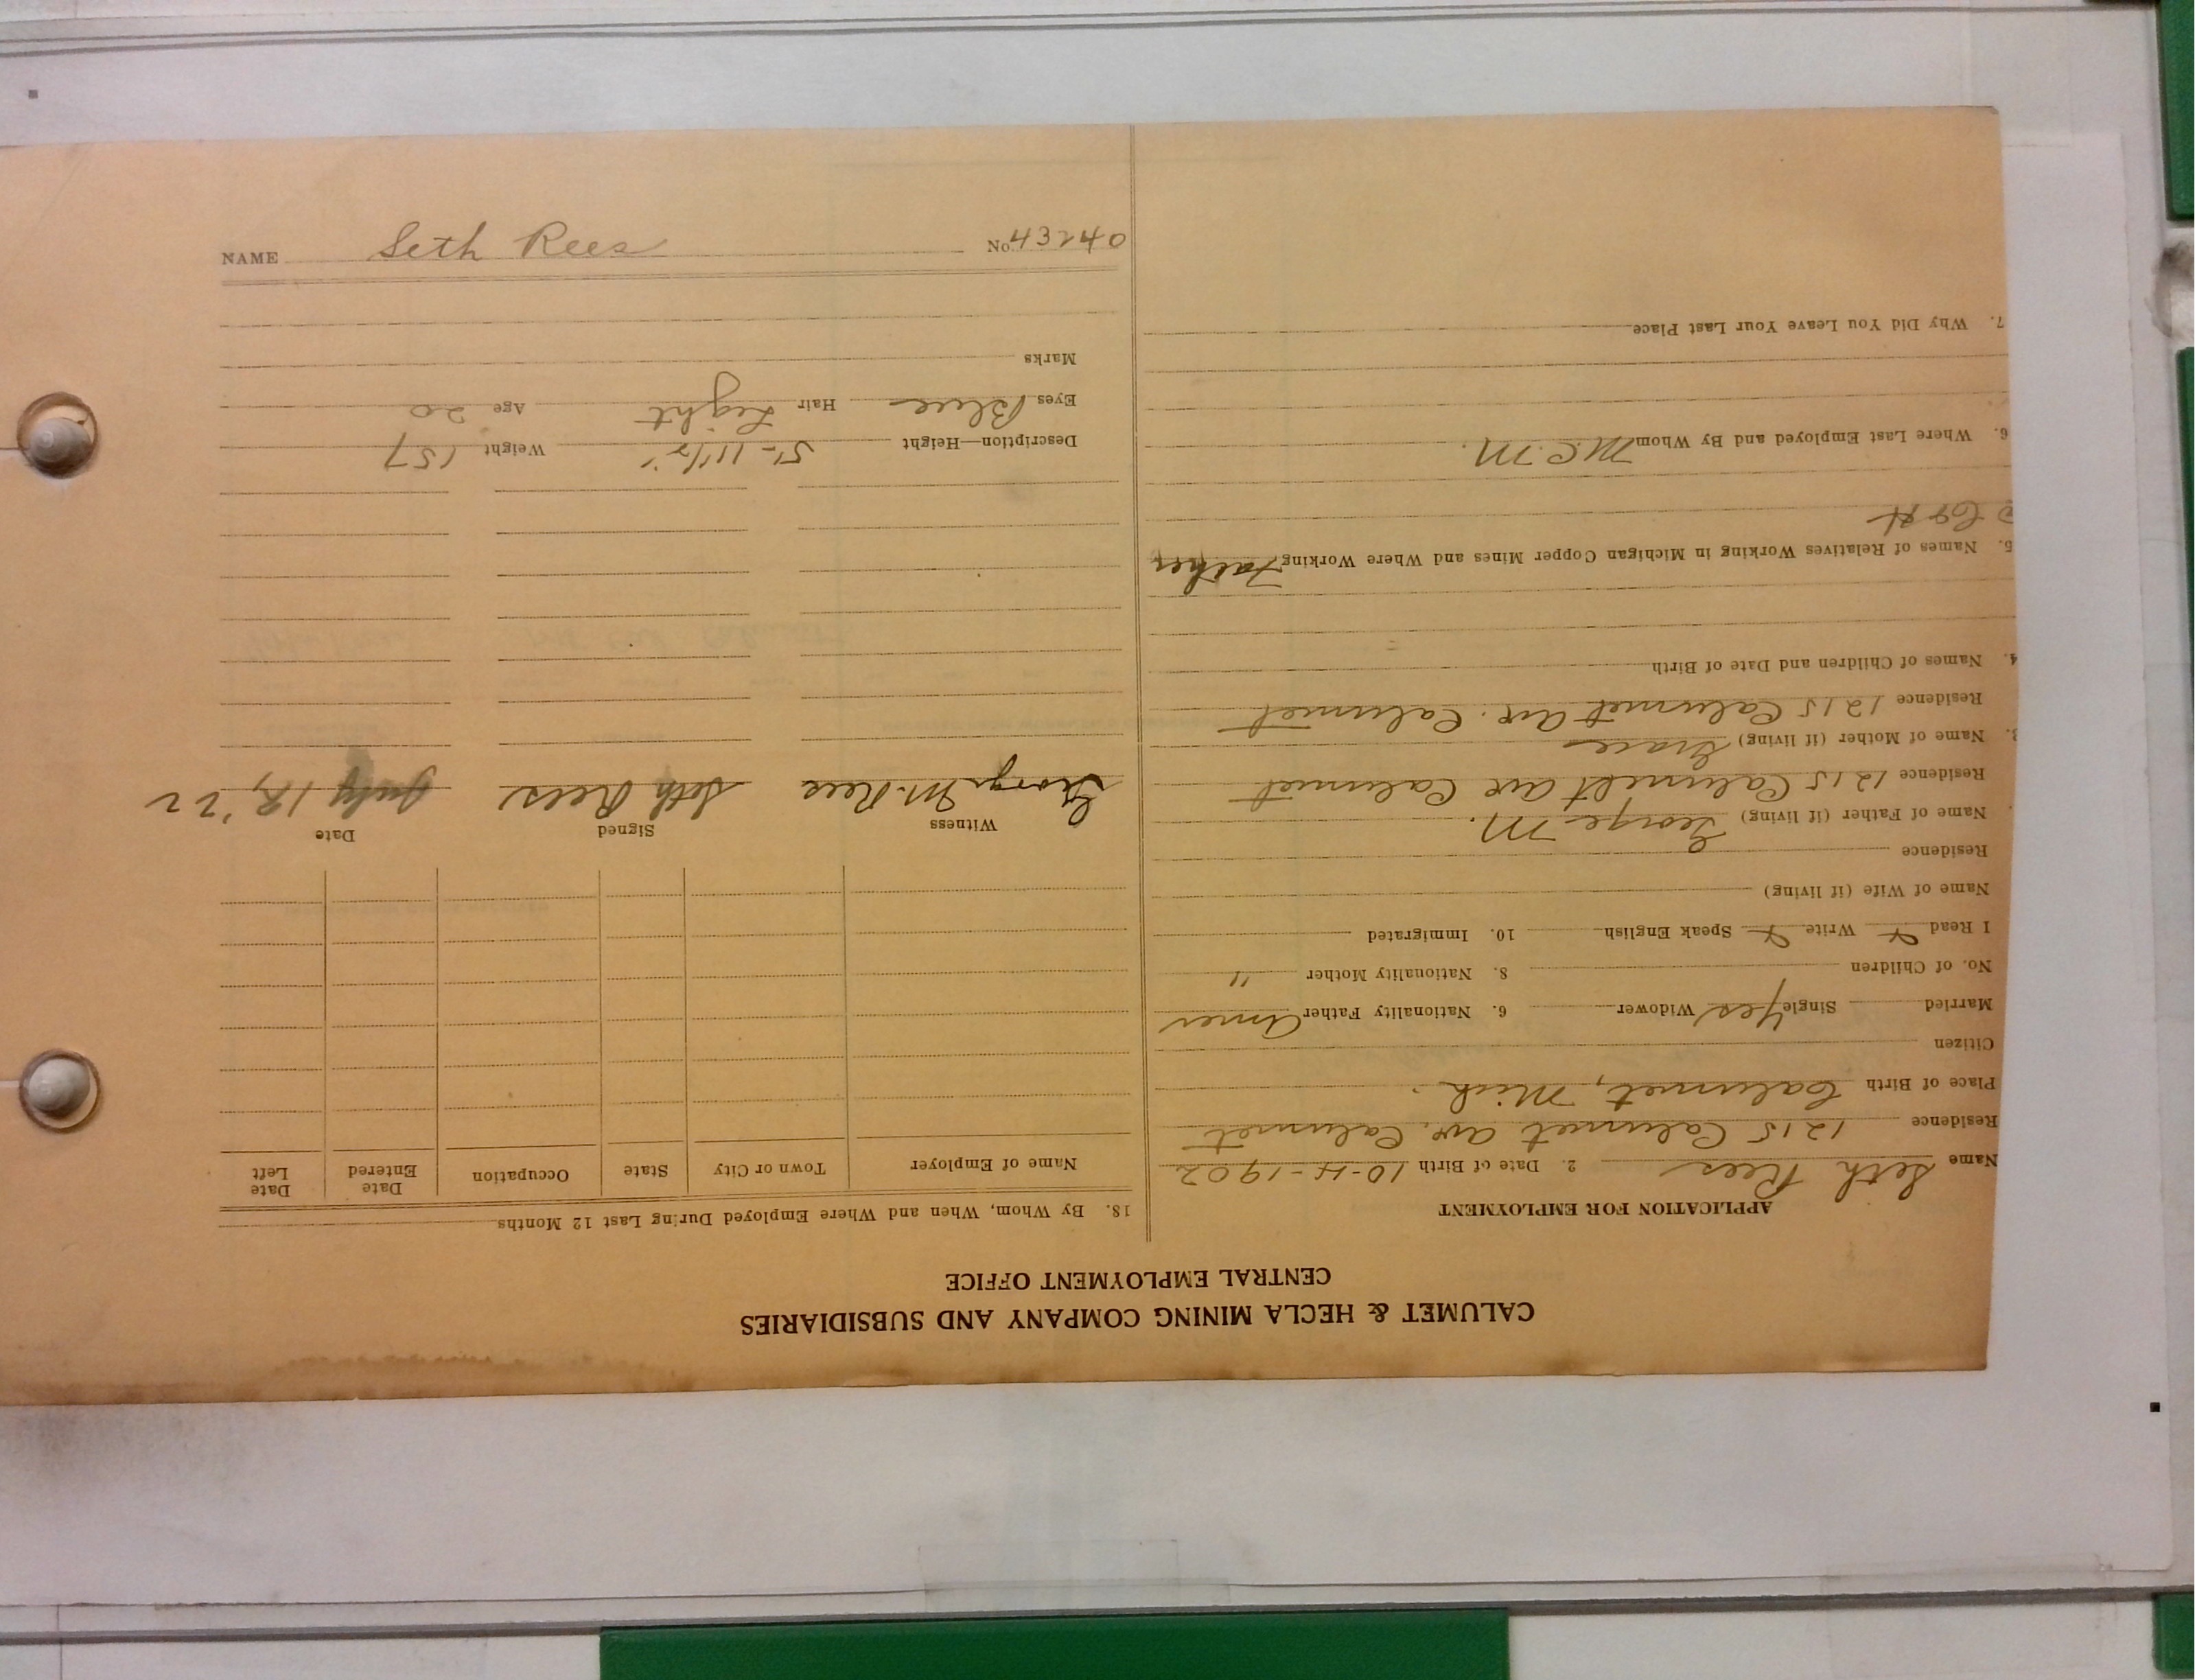 CALUMET & HECLA MINING COMPANY AND SUBSIDIARIES
CENTRAL EMPLOYMENT OFFICE
APPLICATION FOR EMPLOYMENT
Name Seth Rees 2. Date of Birth 10-4-1902
Residence 1215 Calumet av. Calumet
Place of Birth Calumet, Mich.
Citizen
Married Single Yes Widower 6. Nationality Father Amer
No. of Children 8. Nationality Mother "
I Read Write Speak English 10. Immigrated
Name of Wife (if living)
Residence
Name of Father (if living) George M.
Residence 1215 Calumet ave Calumet
3. Name of Mother (if living) Grace
Residence 1215 Calumet av. Calumet
4. Names of Children and Date of Birth
5. Names of Relatives Working in Michigan Copper Mines and Where Working Father
6. Where Last Employed and By Whom M.C.M.
7. Why Did You Leave Your Last Place
18. By Whom, When and Where Employed During Last 12 Months
Name of Employer Town or City State Occupation Date Entered Date Left
Witness Signed Date
George M. Rees Seth Rees July 18, '22
Description—Height 5'-11 1/2" Weight 157
Eyes Blue Hair Light Age 20
Marks
NAME Seth Rees No. 43240